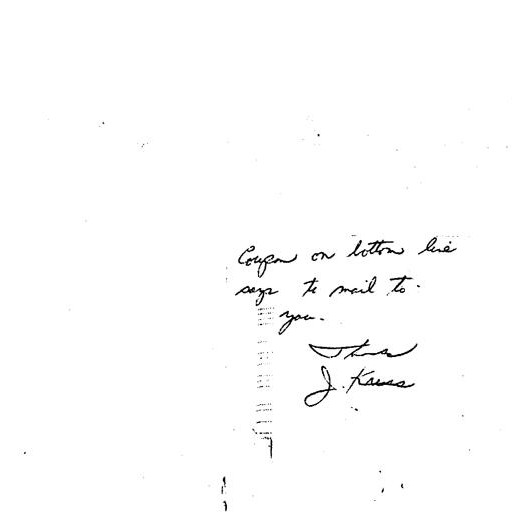 Coupon on bottom line
says to mail to
you.
Thanks
J. Kauss